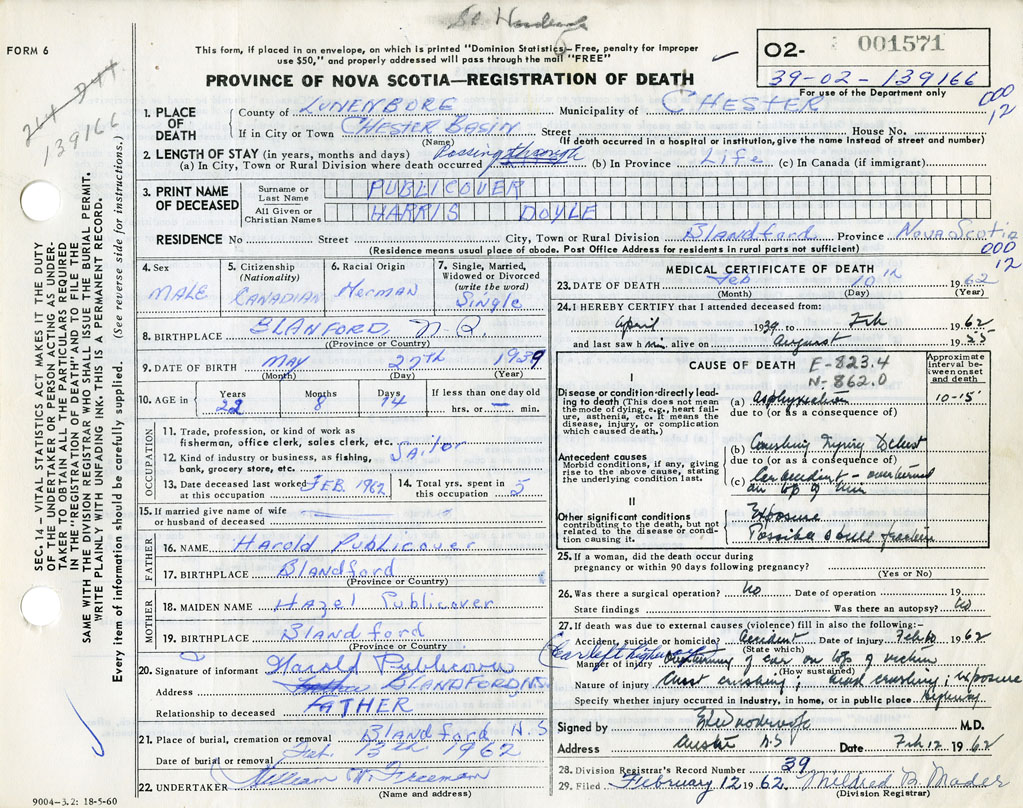 FORM 6
This form, if placed in an envelope, on which is printed "Dominion Statistics—Free, penalty for improper
use $50," and properly addressed will pass through the mail "FREE"
PROVINCE OF NOVA SCOTIA—REGISTRATION OF DEATH
02- 001571
39-02-139166
For use of the Department only
139166
SEC. 14 – VITAL STATISTICS ACT MAKES IT THE DUTY
OF THE UNDERTAKER OR PERSON ACTING AS UNDER-
TAKER TO OBTAIN ALL THE PARTICULARS REQUIRED
IN THE "REGISTRATION OF DEATH" AND TO FILE THE
SAME WITH THE DIVISION REGISTRAR WHO SHALL ISSUE THE BURIAL PERMIT.
WRITE PLAINLY WITH UNFADING INK. THIS IS A PERMANENT RECORD.
Every item of information should be carefully supplied. (See reverse side for instructions.)
1. PLACE OF DEATH County of LUNENBORG Municipality of CHESTER 000 12
If in City or Town CHESTER BASIN Street House No.
(Name) (If death occurred in a hospital or institution, give the name instead of street and number)
2. LENGTH OF STAY (in years, months and days)
(a) In City, Town or Rural Division where death occurred Passing through (b) In Province Life (c) In Canada (if immigrant)
3. PRINT NAME OF DECEASED Surname or Last Name PUBLICOVER
All Given or Christian Names HARRIS DOYLE
RESIDENCE No Street City, Town or Rural Division Blandford Province Nova Scotia
(Residence means usual place of abode. Post Office Address for residents in rural parts not sufficient) 000 12
4. Sex MALE
5. Citizenship (Nationality) CANADIAN
6. Racial Origin German
7. Single, Married, Widowed or Divorced (write the word) Single
8. BIRTHPLACE BLANFORD, N.S.
(Province or Country)
9. DATE OF BIRTH May 27TH 1939
(Month) (Day) (Year)
10. AGE in Years 22 Months 8 Days 14 If less than one day old hrs. or — min.
OCCUPATION
11. Trade, profession, or kind of work as fisherman, office clerk, sales clerk, etc. Sailor
12. Kind of industry or business, as fishing, bank, grocery store, etc.
13. Date deceased last worked at this occupation FEB. 1962
14. Total yrs. spent in this occupation 5
15. If married give name of wife or husband of deceased
FATHER
16. NAME Harold Publicover
17. BIRTHPLACE Blandford
(Province or Country)
MOTHER
18. MAIDEN NAME Hazel Publicover
19. BIRTHPLACE Blandford
(Province or Country)
20. Signature of informant Harold Publicover
Address BLANDFORD NS
Relationship to deceased FATHER
21. Place of burial, cremation or removal Blandford N.S
Date of burial or removal Feb. 13th 1962
22. UNDERTAKER William W. Freeman
(Name and address)
9004–3.2: 18-5-60
MEDICAL CERTIFICATE OF DEATH
23. DATE OF DEATH Feb 10 1962
(Month) (Day) (Year)
24. I HEREBY CERTIFY that I attended deceased from:
April 1939 to Feb 1962
and last saw him alive on August 1955
CAUSE OF DEATH E-823.4
N-862.0
Approximate interval between onset and death
I
Disease or condition directly leading to death (This does not mean the mode of dying, e.g., heart failure, asthenia, etc. It means the disease, injury, or complication which caused death.)
(a) Asphyxiation 10-15'
due to (or as a consequence of)
Antecedent causes
Morbid conditions, if any, giving rise to the above cause, stating the underlying condition last.
(b) Crushing Injury Chest
due to (or as a consequence of)
(c) Car accident - overturned
on top of him
II
Other significant conditions
contributing to the death, but not related to the disease or condition causing it.
Exposure
Possible skull fracture
25. If a woman, did the death occur during pregnancy or within 90 days following pregnancy?
(Yes or No)
26. Was there a surgical operation? No Date of operation 19
State findings Was there an autopsy? No
27. If death was due to external causes (violence) fill in also the following:–
Accident, suicide or homicide? Accident Date of injury Feb 10 1962
(State which)
Car left highway
Manner of injury overturning of car on top of victim
(How sustained)
Nature of injury Chest crushing; head crushing; exposure
Specify whether injury occurred in industry, in home, or in public place Highway
Signed by M.D.
Address NS Date Feb 12 1962
28. Division Registrar's Record Number 39
29. Filed February 12 1962 Mildred B. Mader
(Division Registrar)